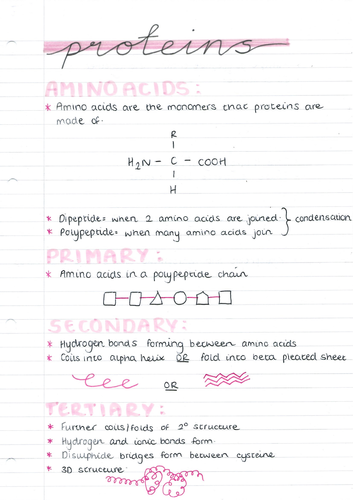 proteins
AMINO ACIDS:
* Amino acids are the monomers that proteins are
made of.
R
H₂N - C - COOH
H
* Dipeptide = when 2 amino acids are joined } condensation
* Polypeptide = when many amino acids join
PRIMARY:
* Amino acids in a polypeptide chain
SECONDARY:
* Hydrogen bonds forming between amino acids
* Coils into alpha helix OR fold into beta pleated sheet
OR
TERTIARY:
* Further coils/folds of 2° structure
* Hydrogen and ionic bonds form
* Disulphide bridges form between cysteine
* 3D structure